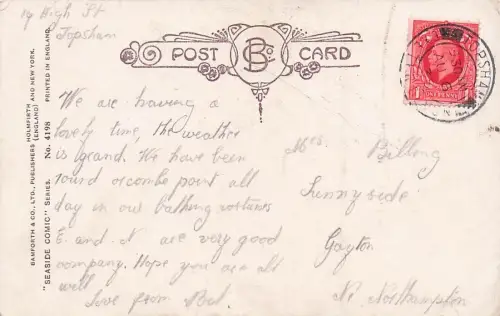 19 High St
Topsham
POST CARD
B Co.
TOPSHAM
1 ONE PENNY 1
BAMFORTH & CO., LTD., PUBLISHERS HOLMFIRTH AND NEW YORK.
(ENGLAND)
PRINTED IN ENGLAND.
"SEASIDE COMIC" SERIES. No. 4198
We are having a
lovely time, the weather
is grand. We have been
round orcombe point all
day in our bathing costumes
E. and N are very good
company. Hope you are all
well
love from
Mrs.
Sunnyside
Gayton
Nr Northampton